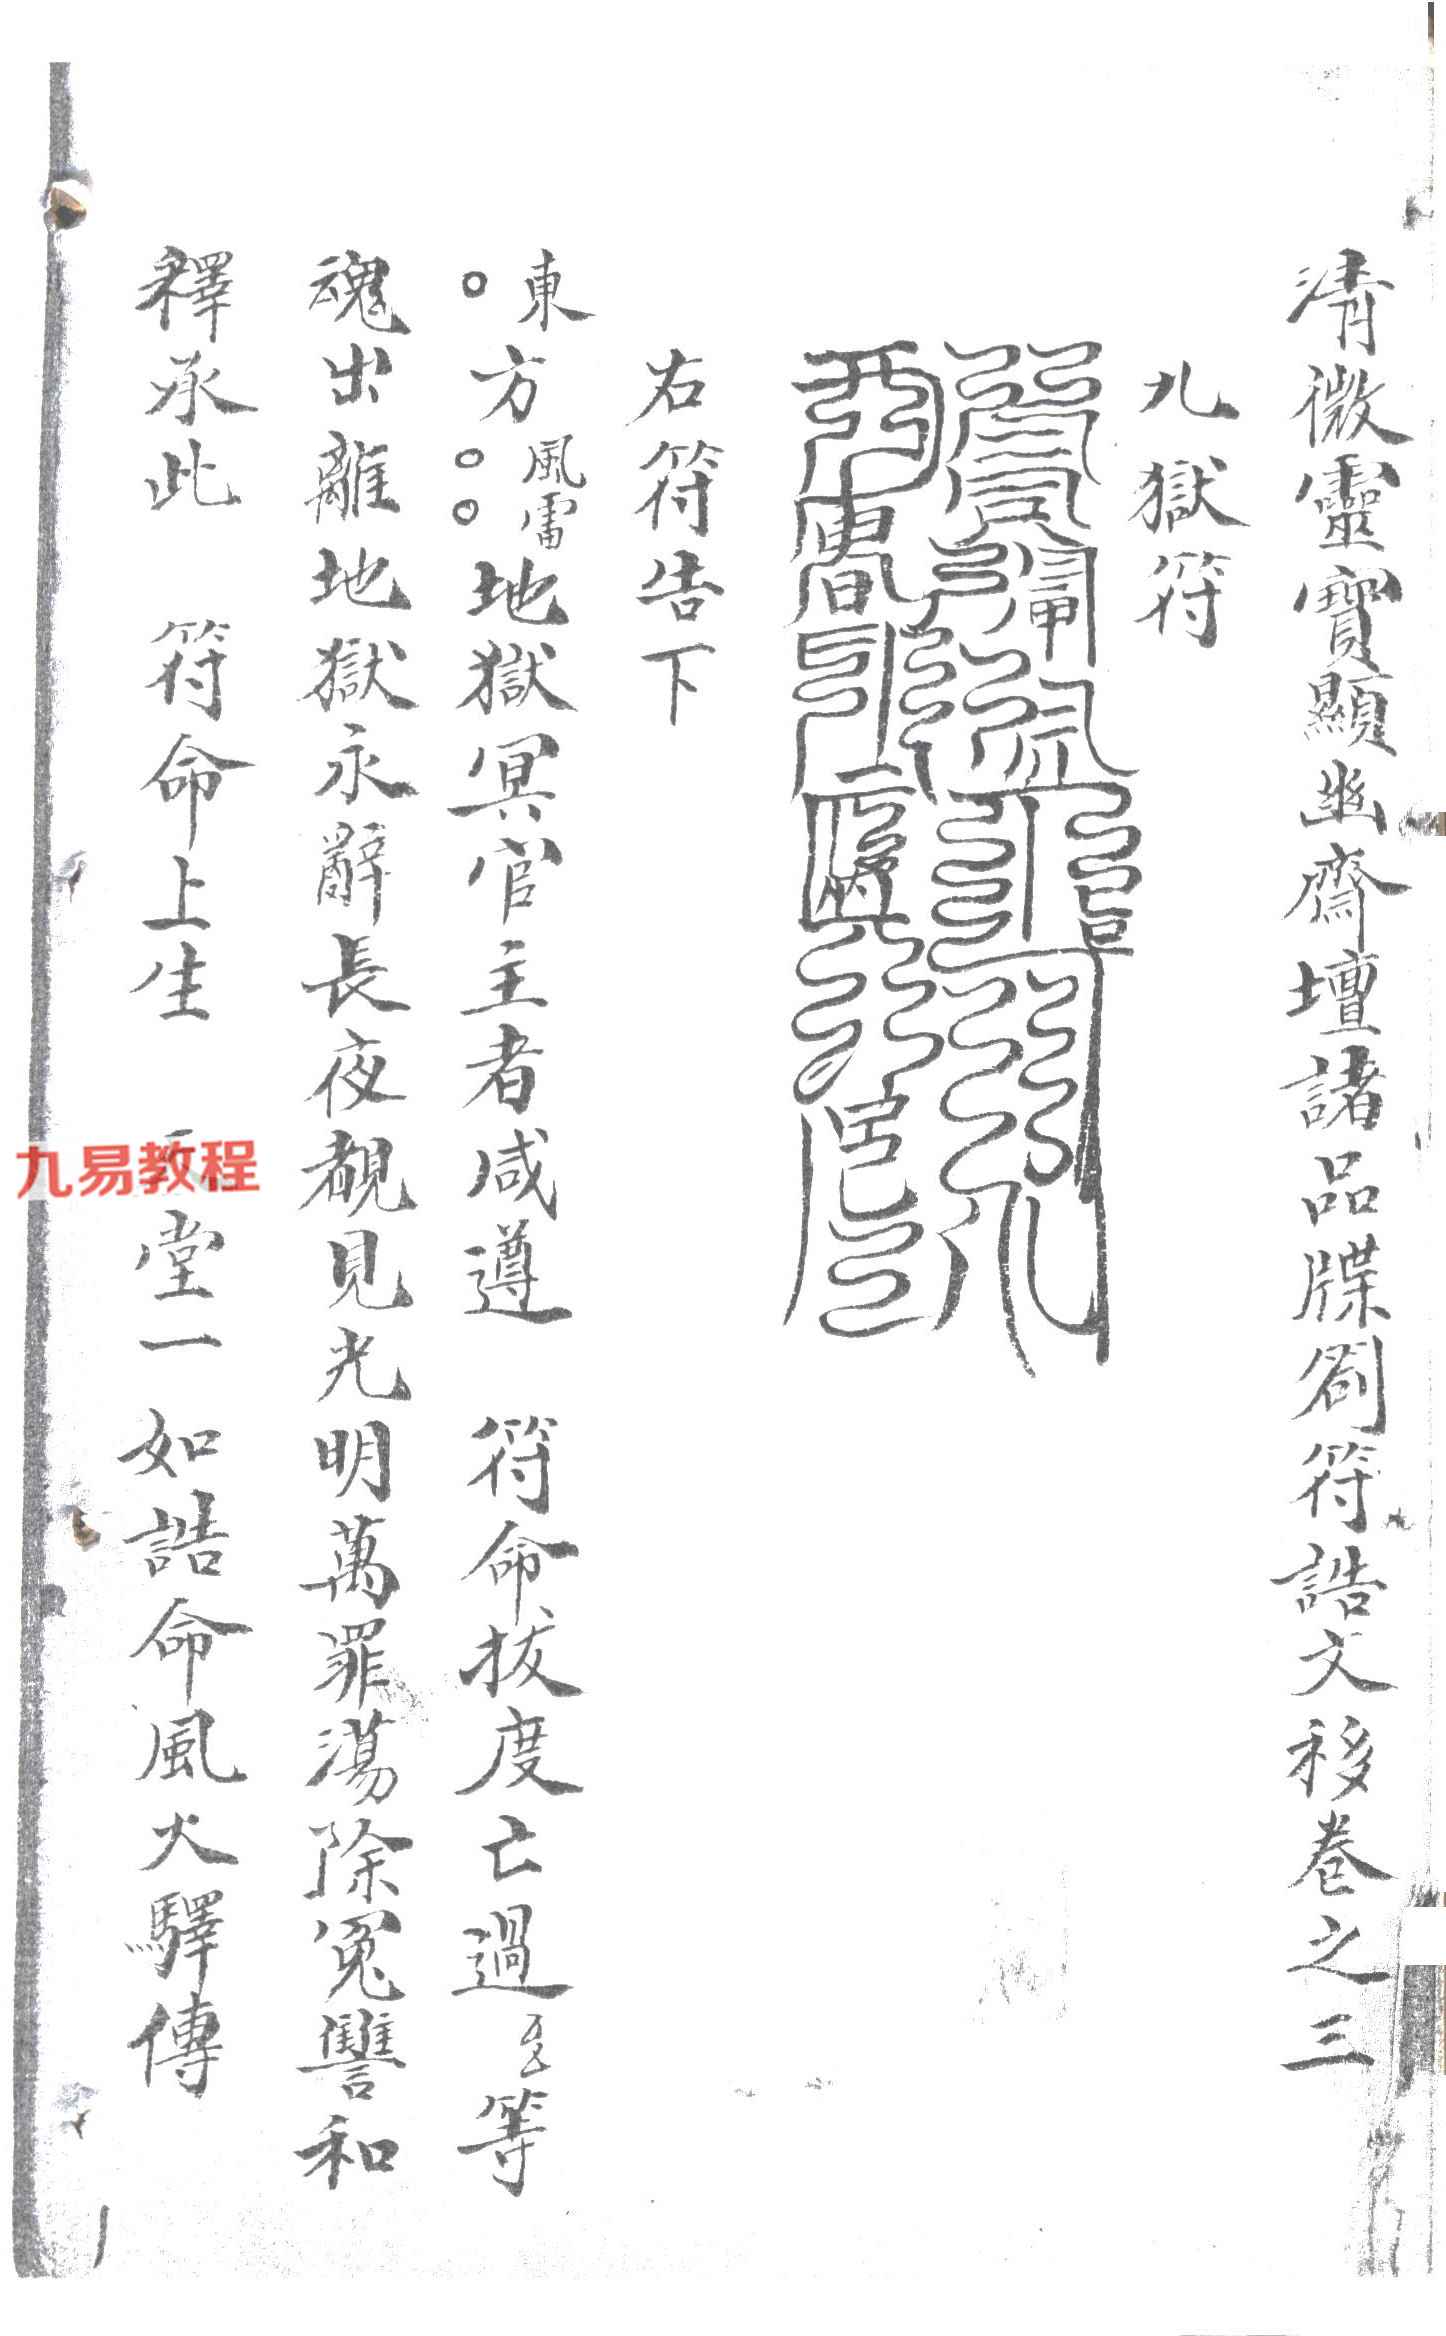 清微靈寳顯幽齋壇諸品牒劄符誥文移卷之三
九獄符
右符告下
○東方○○風雷地獄冥官主者咸遵 符命拔度亡過 等
魂出離地獄永辭長夜覩見光明萬罪蕩除冤讐和
釋承此 符命上生 天堂一如誥命風火驛傳
九易教程